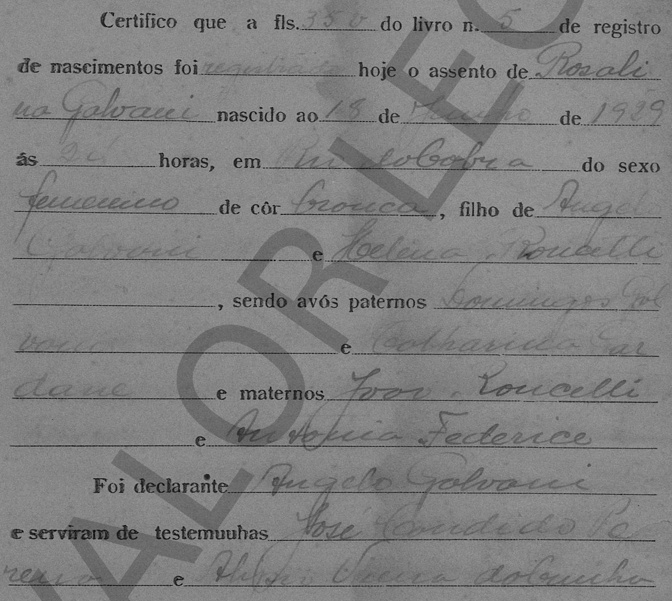 Certifico que a fls. 35 v do livro n. 5 de registro
de nascimentos foi registrado hoje o assento de Rosali
na Galvani nascido ao 18 de Junho de 1929
ás horas, em do sexo
femenino de côr branca, filho de Angelo
Galvani e Helena Roncelli
, sendo avós paternos Domingos Gal
vani e Catharina
e maternos João Roncelli
e Antonia Federice
Foi declarante Angelo Galvani
e serviram de testemuuhas José Candido Pe
reira e Vieira da Cunha
VALOR LEG